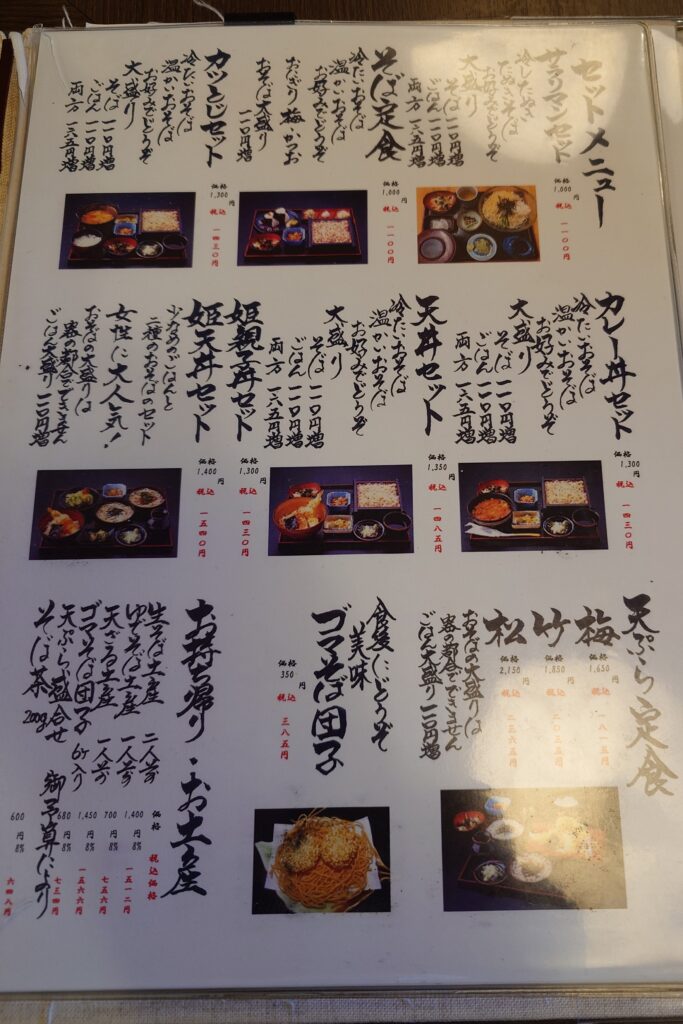 セットメニュー
サラリマンセット
冷したぬき
たぬきそば
お好みでどうぞ
大盛り
そば 一一〇円増
ごはん 一一〇円増
両方 一六五円増
価格
1,000円
税込
一一〇〇円
そば定食
冷たいおそば
温かいおそば
お好みでどうぞ
おにぎり 梅・かつお
おそば大盛り
一一〇円増
価格
1,000円
税込
一一〇〇円
カツとじセット
冷たいおそば
温かいおそば
お好みでどうぞ
大盛り
そば 一一〇円増
ごはん 一一〇円増
両方 一六五円増
価格
1,300円
税込
一四三〇円
カレー丼セット
冷たいおそば
温かいおそば
お好みでどうぞ
大盛り
そば 一一〇円増
ごはん 一一〇円増
両方 一六五円増
価格
1,300円
税込
一四三〇円
天丼セット
冷たいおそば
温かいおそば
お好みでどうぞ
大盛り
そば 一一〇円増
ごはん 一一〇円増
両方 一六五円増
価格
1,350円
税込
一四八五円
姫親子丼セット
価格
1,300円
税込
一四三〇円
姫天丼セット
価格
1,400円
税込
一五四〇円
少なめのごはんと
二種のおそばのセット
女性に大人気!
おそばの大盛りは
器の都合でできません
ごはん大盛り 一一〇円増
天ぷら定食
梅
価格
1,650円
税込
一八一五円
竹
価格
1,850円
税込
二〇三五円
松
価格
2,150円
税込
二三六五円
おそばの大盛りは
器の都合でできません
ごはん大盛り 一一〇円増
食後にどうぞ
美味
ゴマそば団子
価格
350円
税込
三八五円
お持ち帰り・お土産
価格
税込価格
生そば土産 二人前
1,400円
8%
一五一二円
ゆでそば土産 一人前
700円
8%
七五六円
天ざる土産 一人前
1,450円
8%
一五六六円
ゴマそば団子 6ケ入り
680円
8%
七三四円
天ぷら盛合せ 御予算により
そば茶 200g
600円
8%
六四八円